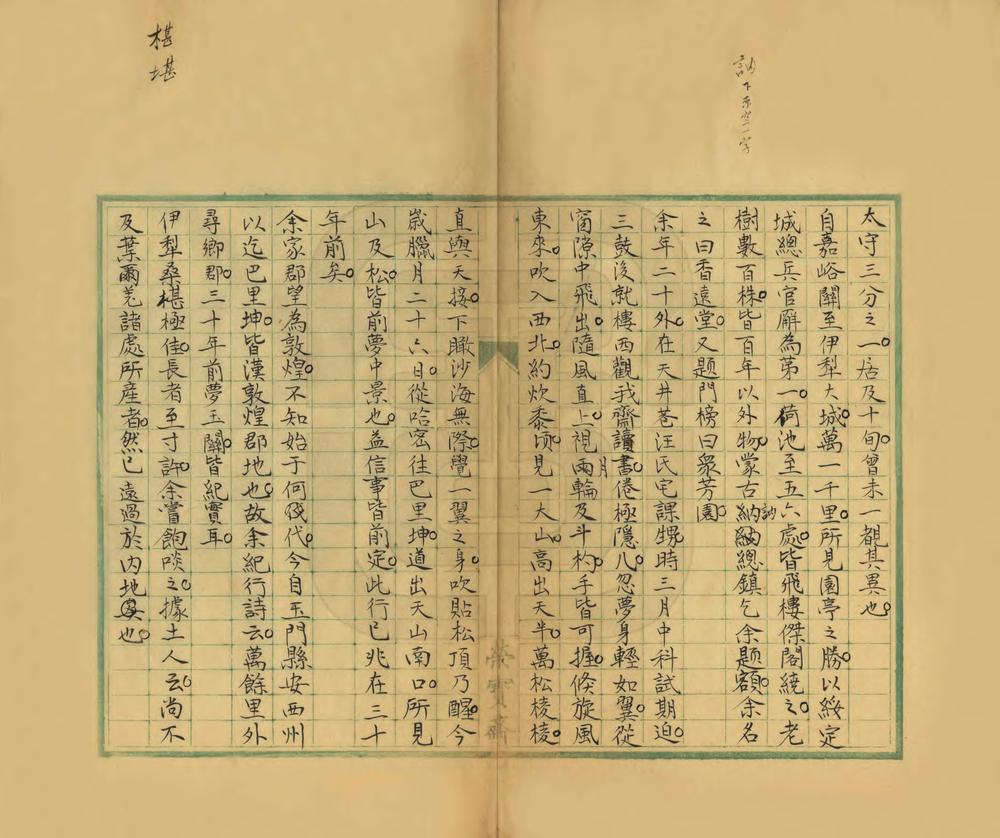 訥下不空一字
太守三分之一居及十旬曾未一覩其異也。
自嘉峪關至伊犁大城。萬一千里。所見園亭之勝。以綏定
城總兵官廨為第一。荷池至五六處。皆飛樓傑閣繞之。老
樹數百株。皆百年以外物。蒙古納訥總鎮乞余題額。余名
之曰香遠堂。又題門榜曰衆芳園。
余年二十外。在天井巷汪氏宅課甥。時三月中科試期迫。
三鼓後就樓西觀我齋讀書。倦極隱几。忽夢身輕如翼。從
窗隙中飛出。隨風直上。視兩月輪及斗杓。手皆可握。倏旋風
東來。吹入西北。約炊黍頃。見一大山。高出天半。萬松棱棱。
直與天接。下瞰沙海無際。覺一翼之身。吹貼松頂乃醒。今
歲臘月二十六日。從哈密往巴里坤。道出天山南口。所見
山及松。皆前夢中景也。益信事皆前定。此行已兆在三十
年前矣。
余家郡望為敦煌。不知始于何代。今自玉門縣安西州
以迄巴里坤。皆漢敦煌郡地也。故余紀行詩云。萬餘里外
尋鄉郡。三十年前夢玉關。皆紀實耳。
伊犁桑椹極佳。長者至寸許。余嘗飽啖之。據土人云。尚不
及葉爾羌諸處所產者。然已遠過於內地也。
椹堪
榮寶齋